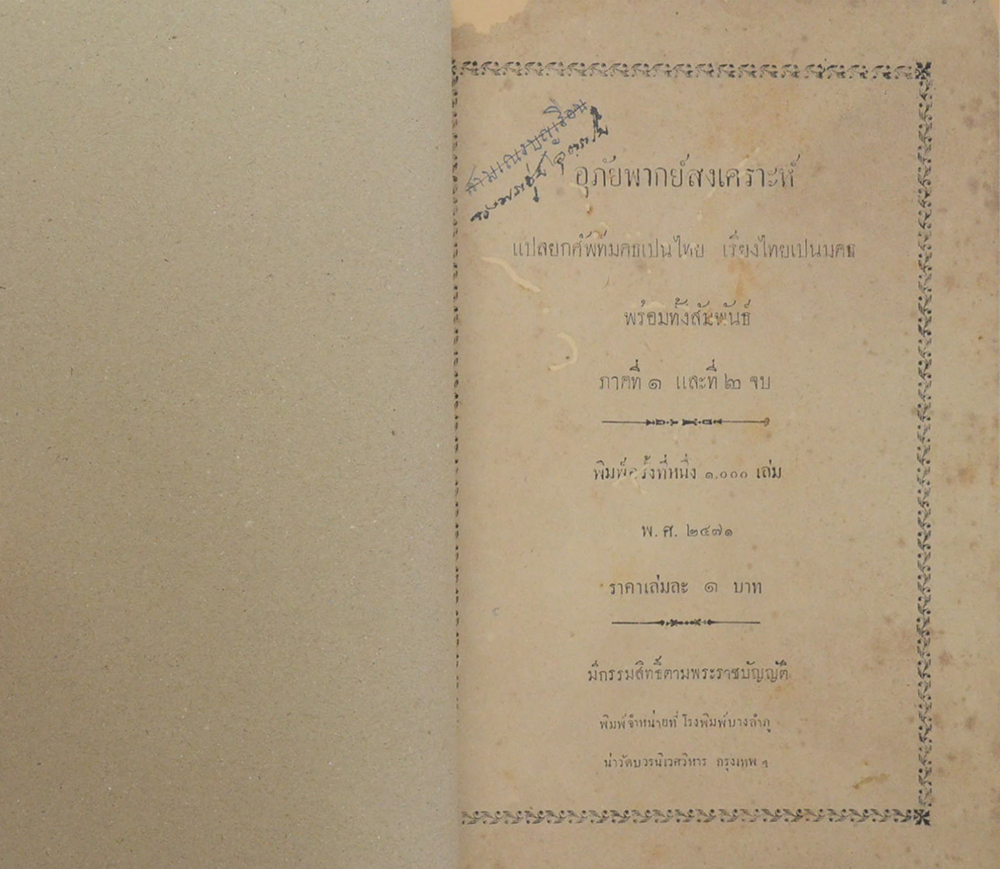 สามเณรบุญเรือน
อุภัยพากย์สงเคราะห์
แปลยกศัพท์มคธเปนไทย เรียงไทยเปนมคธ
พร้อมทั้งสัมพันธ์
ภาคที่ ๑ และที่ ๒ จบ
พิมพ์ครั้งที่หนึ่ง ๑,๐๐๐ เล่ม
พ. ศ. ๒๔๗๑
ราคาเล่มละ ๑ บาท
มีกรรมสิทธิ์ตามพระราชบัญญัติ
พิมพ์จำหน่ายที่ โรงพิมพ์บางลำภู
น่าวัดบวรนิเวศวิหาร กรุงเทพ ฯ